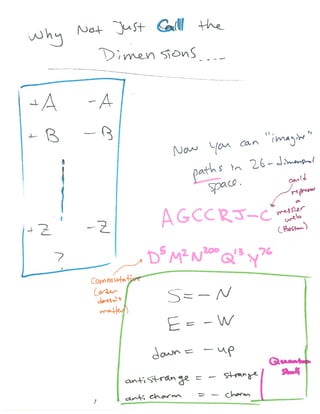 Why Not Just Call the
Dimensions....
+A -A
+B -B
+Z -Z
?
Now you can "imagine"
paths in 26-dimensional
space.
could
represent
a
messier
web
(Boston)
AGCCRJ-C
D⁵M²N²⁰⁰Q¹³Y⁷⁶
Commutative
(order
doesn't
matter)
S=-N
E=-W
down=-up
antistrange=-strange
anticharm=-charm
Quantum